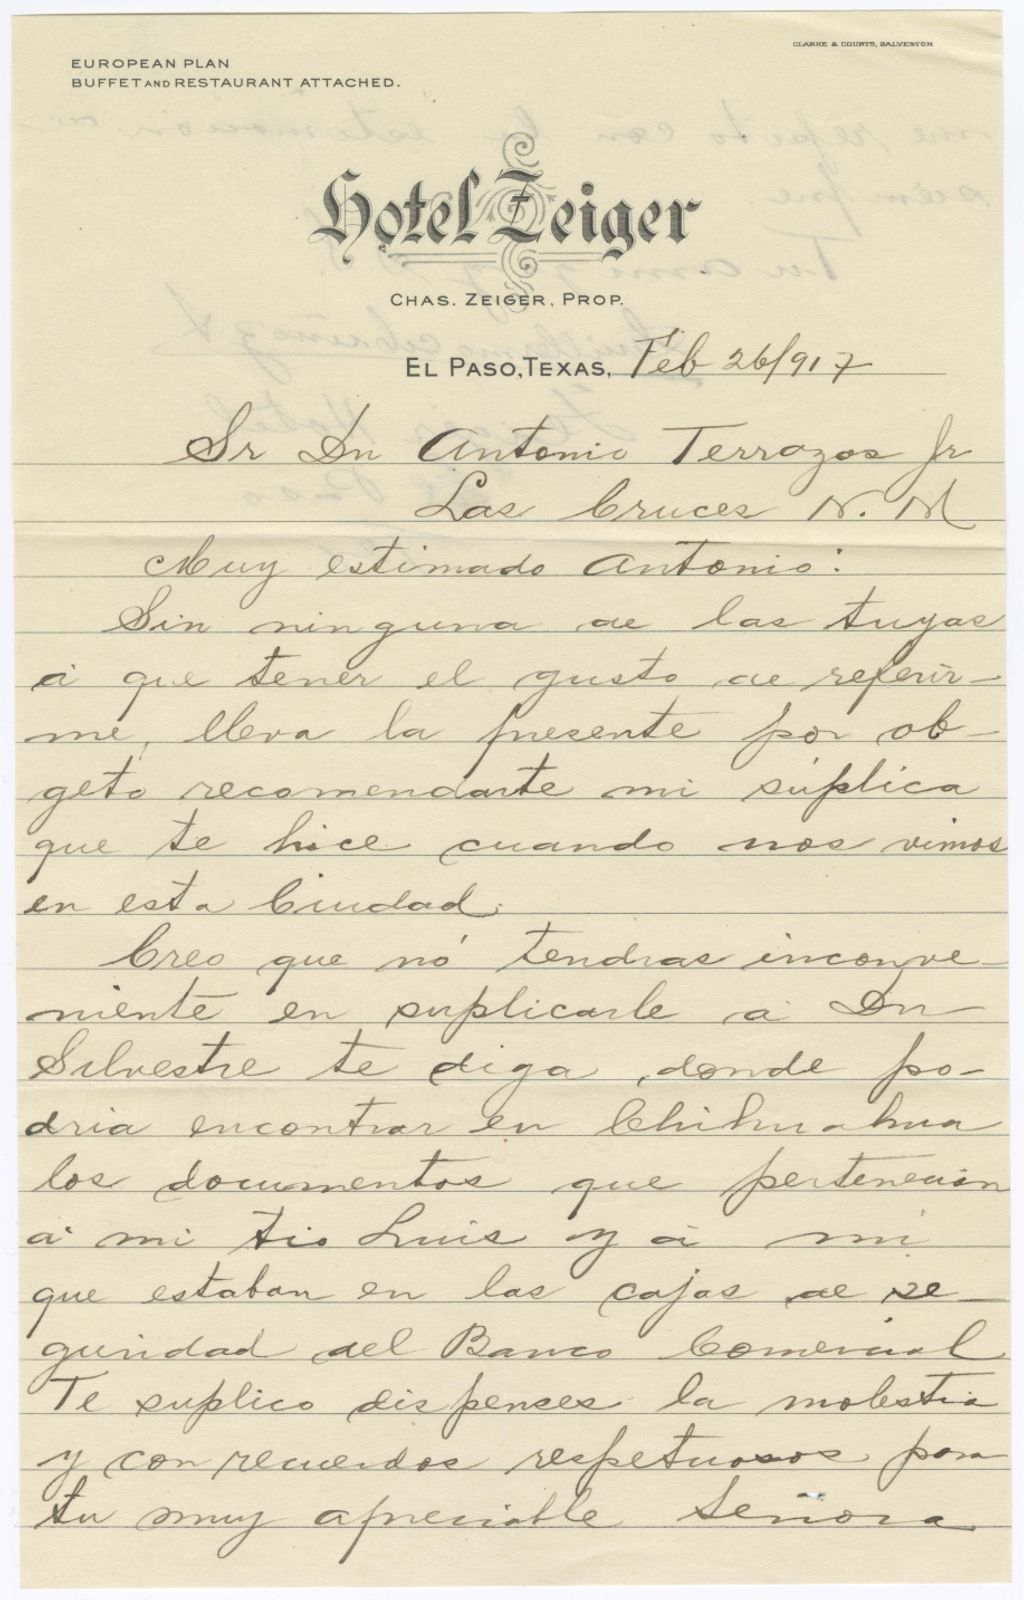 CLARKE & COURTS, GALVESTON
EUROPEAN PLAN
BUFFET AND RESTAURANT ATTACHED.
Hotel Zeiger
CHAS. ZEIGER, PROP.
EL PASO, TEXAS, Feb 26/917
Sr Dn Antonio Terrazas Jr
Las Cruces N. M
Muy estimado Antonio:
Sin ninguna de las tuyas
á que tener el gusto de referir-
me, lleva la presente por ob-
geto recomendarte mi súplica
que te hice cuando nos vimos
en esta Ciudad.
Creo que nó tendras inconve-
niente en suplicarle a Dn
Silvestre te diga, donde po-
dria encontrar en Chihuahua
los documentos que pertenecian
á mi tio Luis y á mi
que estaban en las cajas de se-
guridad del Banco Comercial
Te suplico dispenses la molestia
y con recuerdos respetuosos para
tu muy apreciable Señora